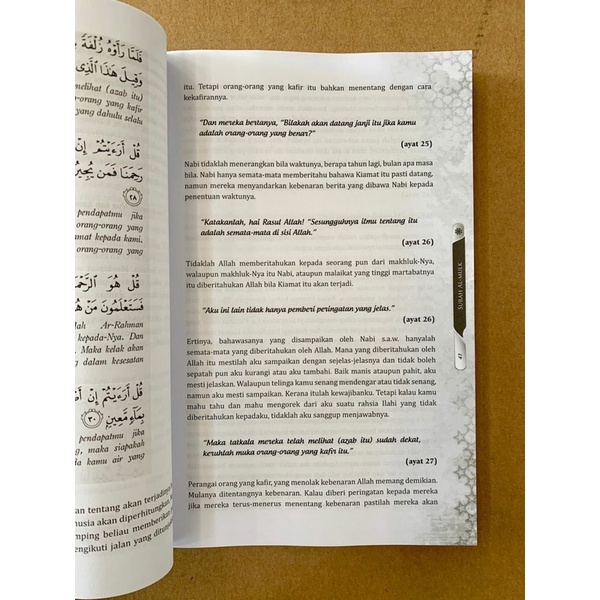 فَلَمَّا رَأَوْهُ زُلْفَةً
وَقِيلَ هَذَا الَّذِي
melihat (azab itu)
-orang yang kafir
yang dahulu selalu
قُلْ أَرَءَيْتُمْ إِنْ
رَحِمَنَا فَمَن يُجِيرُ
٢٨
pendapatmu jika
orang-orang yang
mat kepada kami.
orang-orang yang
قُلْ هُوَ الرَّحْمَ
فَسَتَعْلَمُونَ مَنْ هُ
lah Ar-Rahman
kepada-Nya. Dan
Maka kelak akan
g dalam kesesatan
قُلْ أَرَءَيْتُمْ إِنْ أَصْ
بِمَاءٍ مَّعِينٍ ٣٠
pendapatmu jika
ng, maka siapakah
kamu air yang
an tentang akan terjadinya
usia akan diperhitungkan.
mping beliau memberikan
engikuti jalan yang ditun
itu. Tetapi orang-orang yang kafir itu bahkan menentang dengan cara
kekafirannya.
"Dan mereka bertanya, "Bilakah akan datang janji itu jika kamu
adalah orang-orang yang benar?"
(ayat 25)
Nabi tidaklah menerangkan bila waktunya, berapa tahun lagi, bulan apa masa
bila. Nabi hanya semata-mata memberitahu bahawa Kiamat itu pasti datang,
namun mereka menyandarkan kebenaran berita yang dibawa Nabi kepada
penentuan waktunya.
"Katakanlah, hai Rasul Allah! "Sesungguhnya ilmu tentang itu
adalah semata-mata di sisi Allah."
(ayat 26)
Tidaklah Allah memberitahukan kepada seorang pun dari makhluk-Nya,
walaupun makhluk-Nya itu Nabi, ataupun malaikat yang tinggi martabatnya
itu diberitahukan Allah bila Kiamat itu akan terjadi.
"Aku ini lain tidak hanya pemberi peringatan yang jelas."
(ayat 26)
Ertinya, bahawasanya yang disampaikan oleh Nabi s.a.w. hanyalah
semata-mata yang diberitahukan oleh Allah. Mana yang diberitahukan oleh
Allah itu mestilah aku sampaikan dengan sejelas-jelasnya dan tidak boleh
sepatah pun aku kurangi atau aku tambahi. Baik manis ataupun pahit, aku
mesti jelaskan. Walaupun telinga kamu senang mendengar atau tidak senang,
namun aku mesti sampaikan. Kerana itulah kewajibanku. Tetapi kalau kamu
mahu tahu dan mahu mengorek dari aku suatu rahsia Ilahi yang tidak
diberitahukan kepadaku, tidaklah aku sanggup menjawabnya.
"Maka tatkala mereka telah melihat (azab itu) sudah dekat,
keruhlah muka orang-orang yang kafir itu."
(ayat 27)
Perangai orang yang kafir, yang menolak kebenaran Allah memang demikian.
Mulanya ditentangnya kebenaran. Kalau diberi peringatan kepada mereka
jika mereka terus-menerus menentang kebenaran pastilah mereka akan
SURAH AL-MULK
47